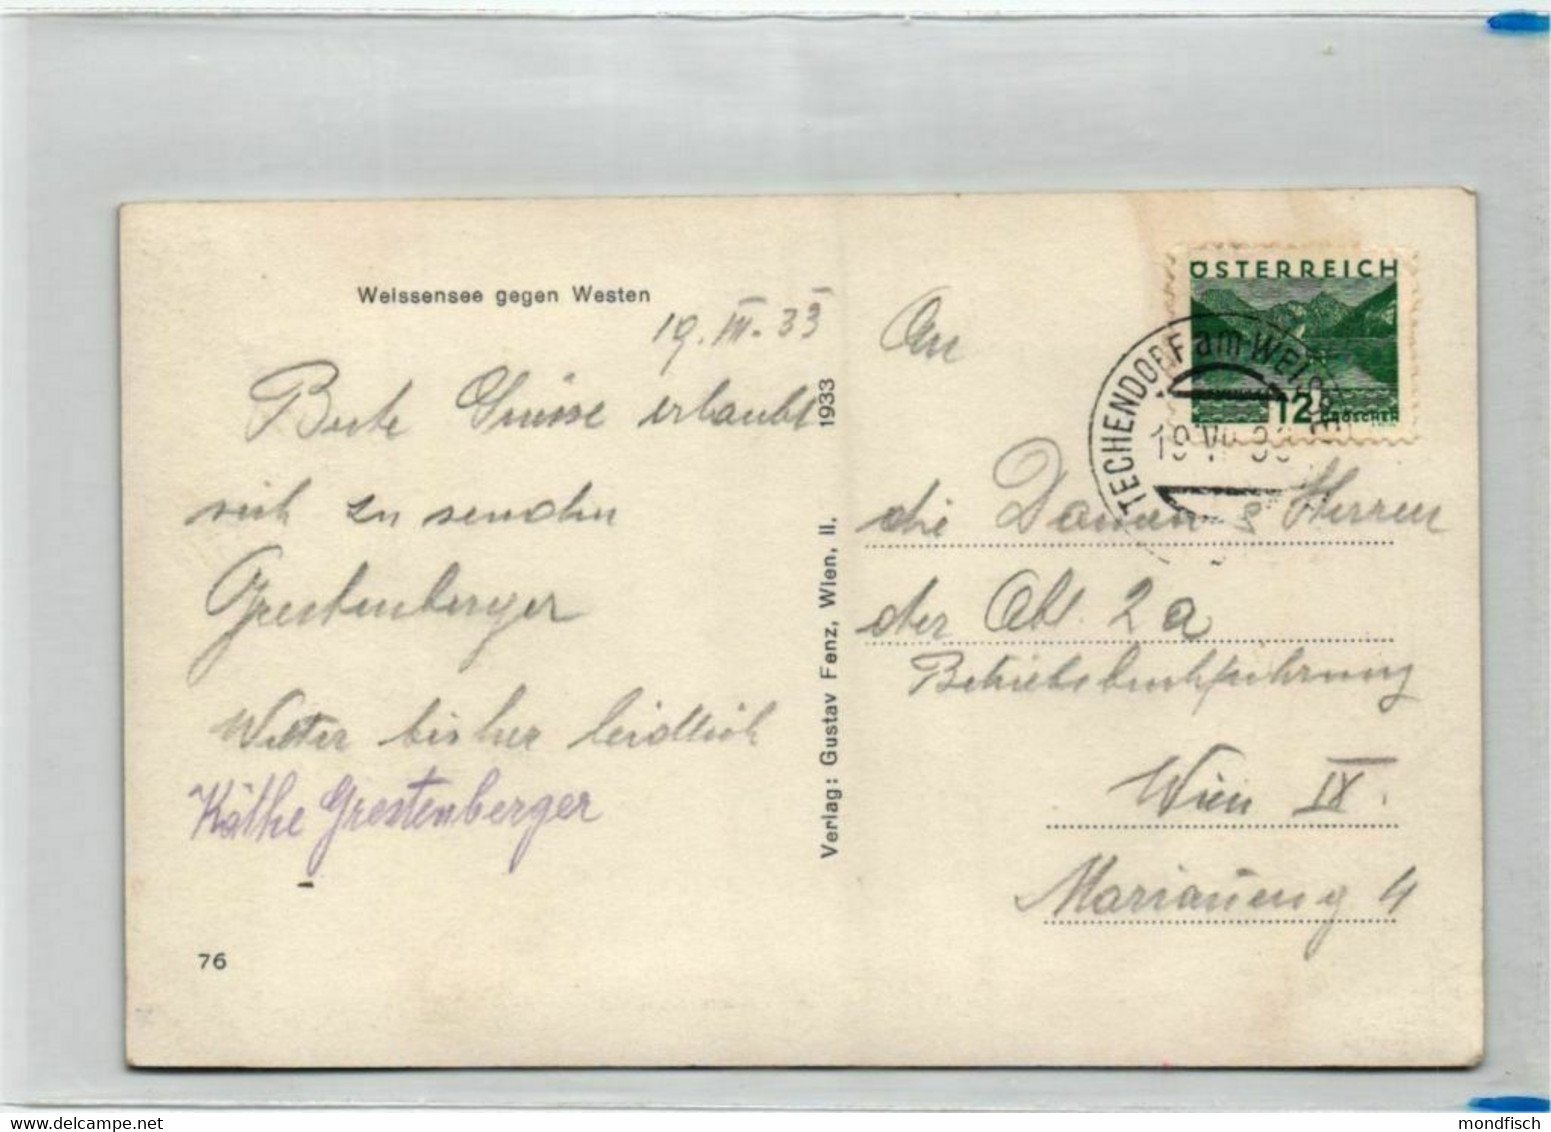 Weissensee gegen Westen
19. VII. 33
Beste Grüsse erlaubt
sich zu senden
Grestenberger
Wetter bisher leidlich
Käthe Grestenberger
76
Verlag: Gustav Fenz, Wien, II. 1933
ÖSTERREICH
12 GROSCHEN
TECHENDORF am WEISSENSEE
An
die Damen & Herren
der Abt. 2a
Betriebsbuchführung
Wien IX.
Marianneng 4
mondfisch